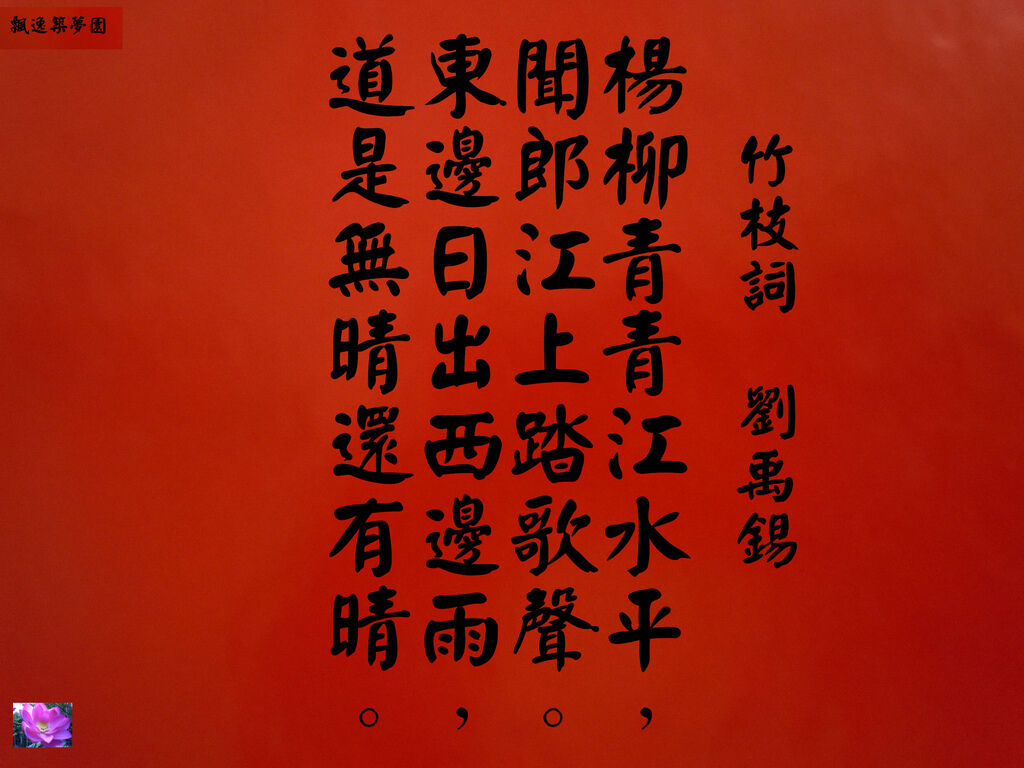 飄逸築夢園
竹枝詞 劉禹錫
楊柳青青江水平,
聞郎江上踏歌聲。
東邊日出西邊雨,
道是無晴還有晴。